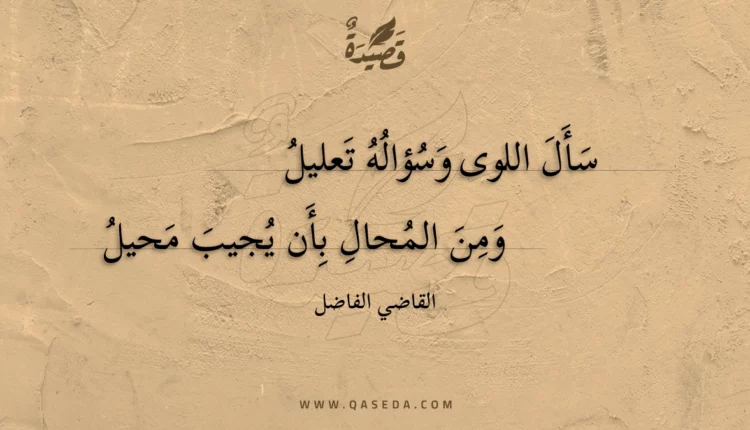 قَصِيْدَةٌ
سَأَلَ اللوى وَسُؤالُهُ تَعليلُ
وَمِنَ المُحالِ بِأَن يُجيبَ مَحيلُ
القاضي الفاضل
WWW.QASEDA.COM